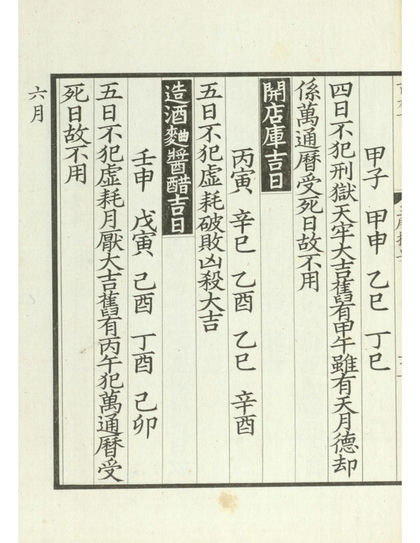 甲子 甲申 乙巳 丁巳
四日不犯刑獄天牢大吉舊有甲午雖有天月德却
係萬通曆受死日故不用
開店庫吉日
丙寅 辛巳 乙酉 乙巳 辛酉
五日不犯虛耗破敗凶殺大吉
造酒麯醬醋吉日
壬申 戊寅 己酉 丁酉 己卯
五日不犯虛耗月厭大吉舊有丙午犯萬通曆受
死日故不用
六月